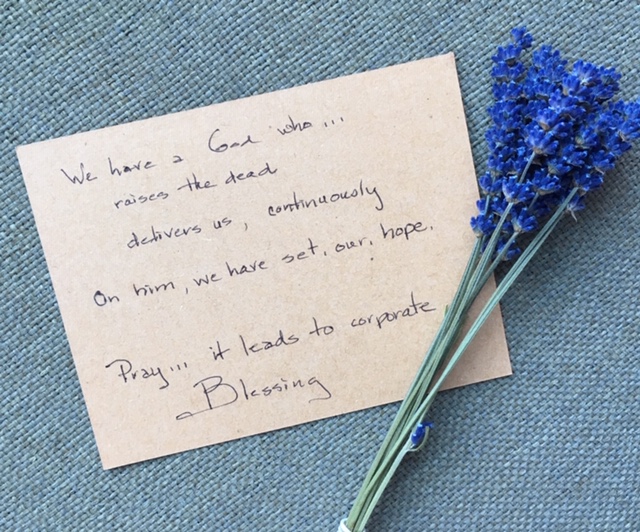 We have a God who...
raises the dead
delivers us, continuously
On him, we have set. our. hope.
Pray... it leads to corporate
Blessing